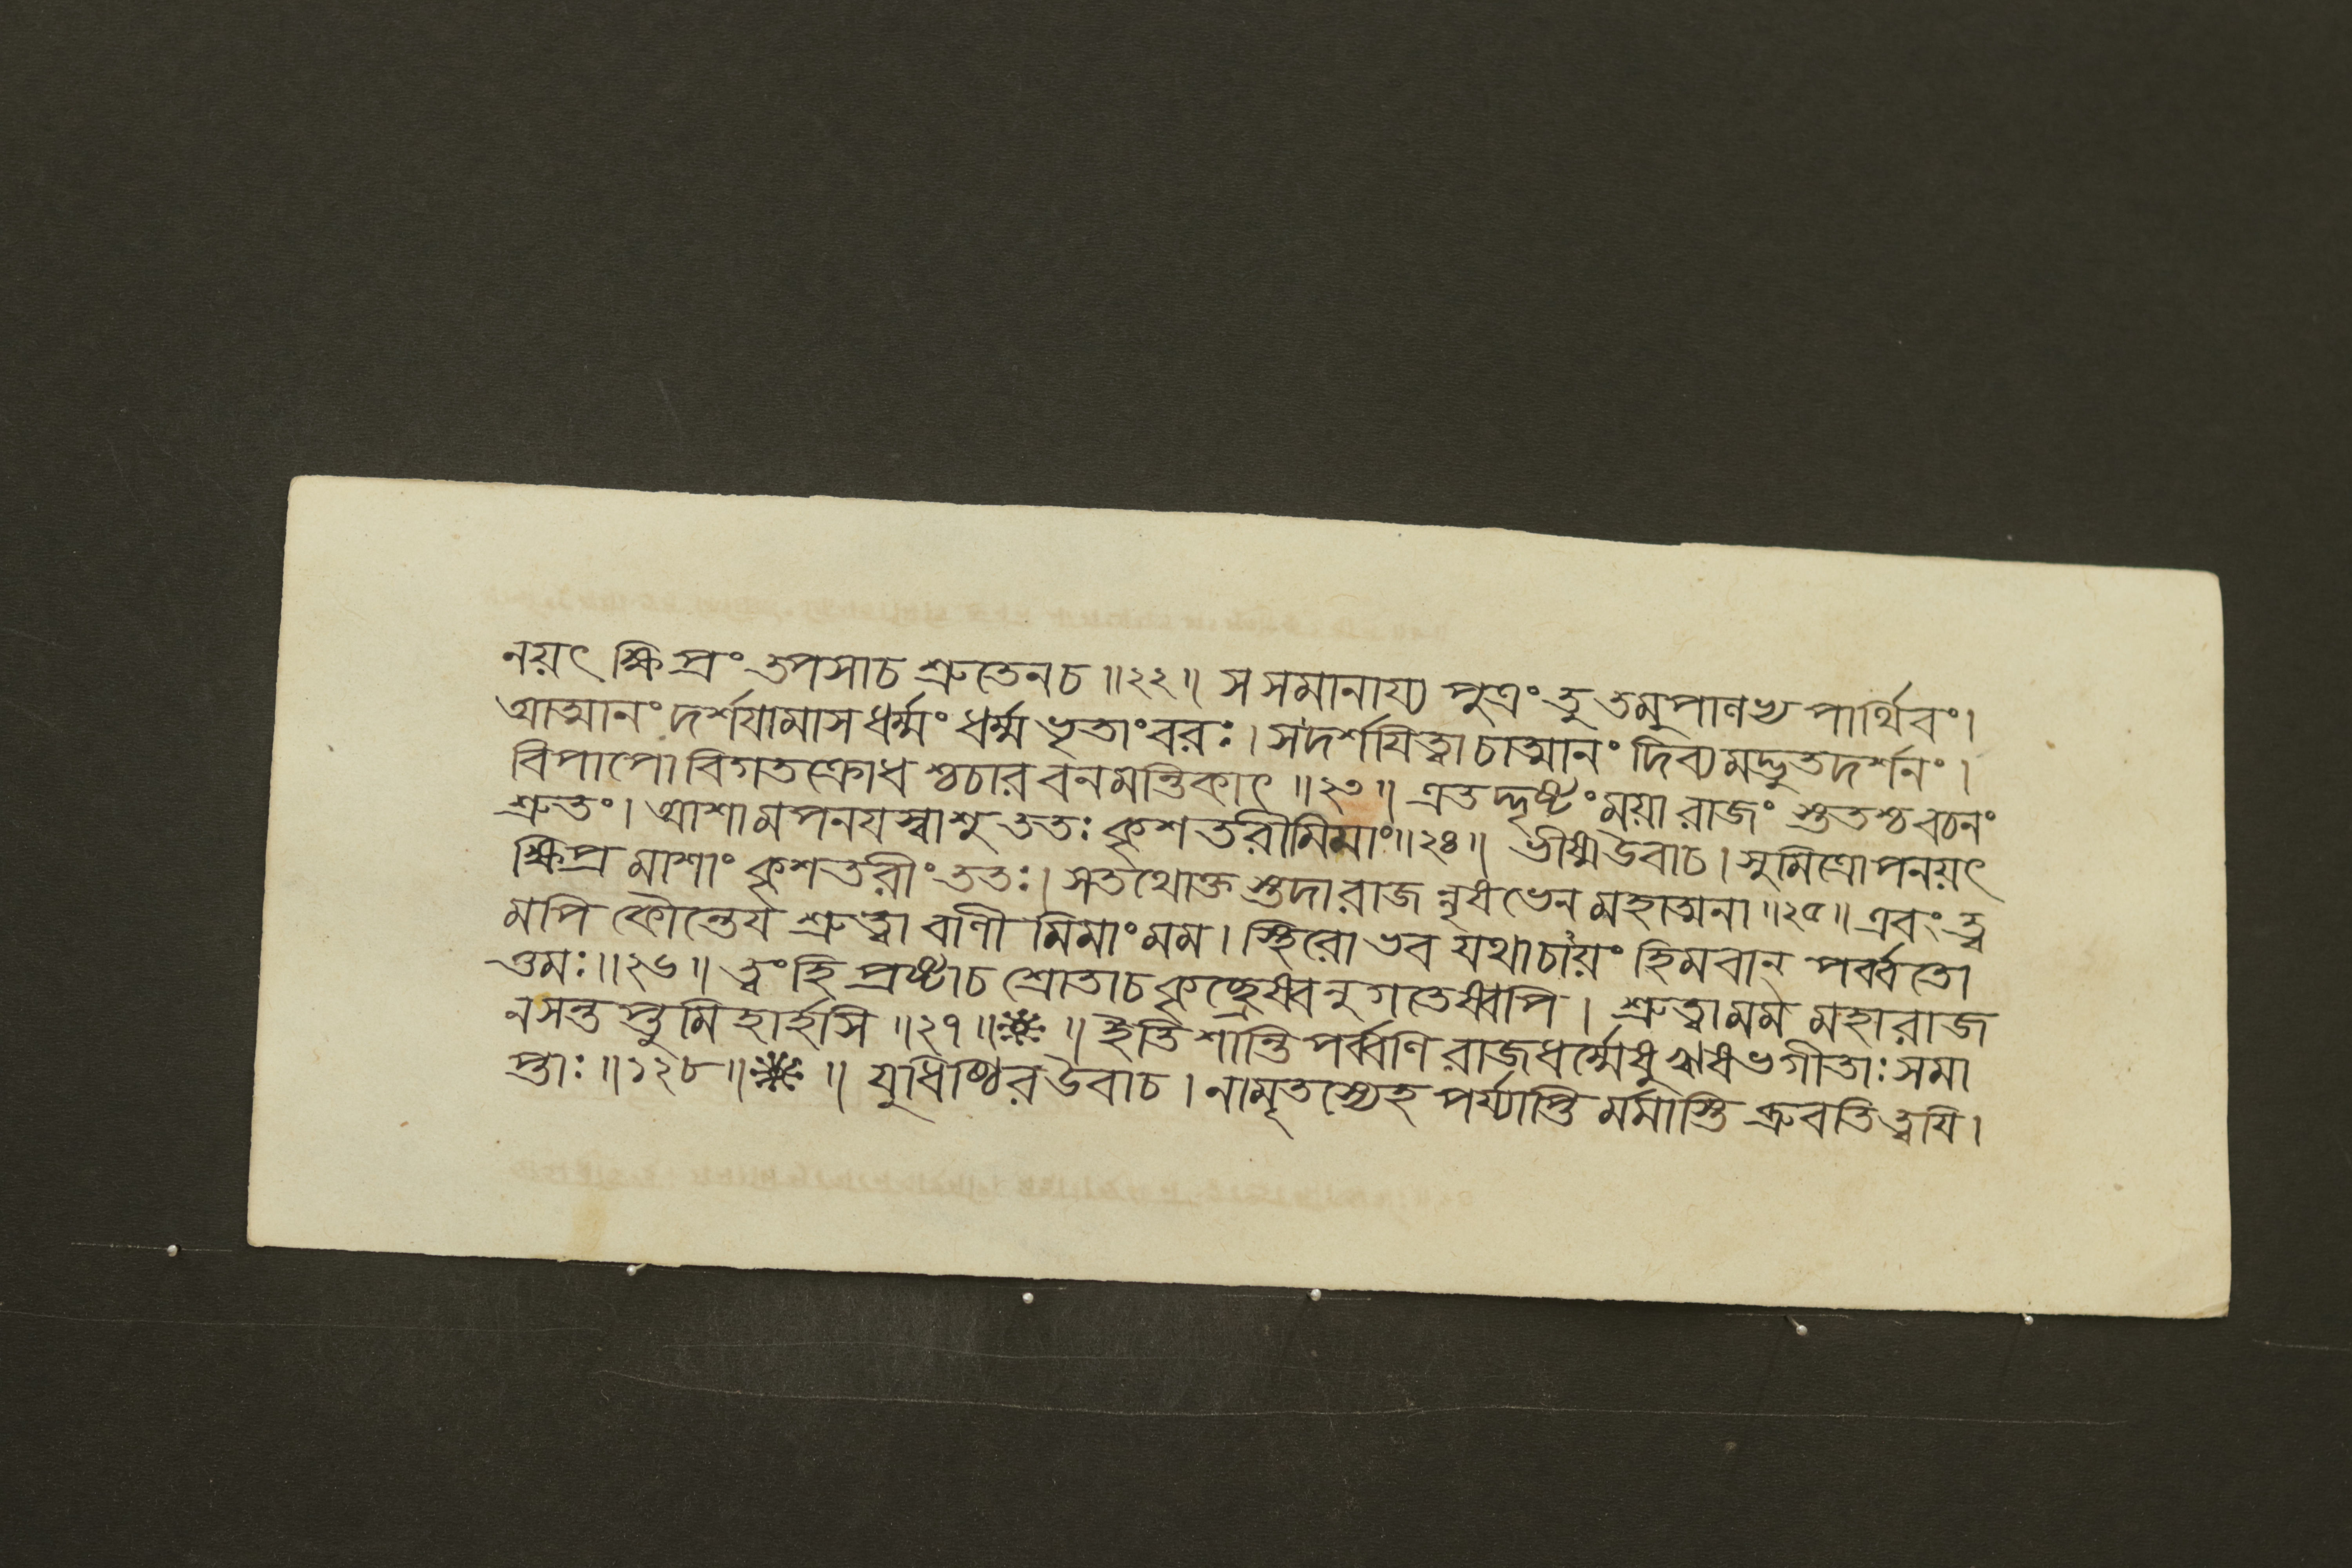 নয়ৎ ক্ষিপ্রং তপসাচ শ্রুতেনচ ॥২২॥ স সমানায্য পুত্রং তু তমুপালভ্য পার্থিবং।
আত্মানং দর্শযামাস ধর্ম্মং ধর্ম্মভৃতাংবরঃ। সদর্শযিত্বা চাত্মানং দিব্যমদ্ভুতদর্শনং।
বিপাপো বিগতক্রোধ শ্চচার বনমন্তিকাৎ ॥২৩॥ এতদ্দৃষ্টং ময়া রাজং স্তুতশ্চ বচনং
শ্রুতং। আশামপনযস্বাশু ততঃ কৃশতরীমিমাং॥২৪॥ ভীষ্মউবাচ। সুমিত্রোপনয়ৎ
ক্ষিপ্র মাশাং কৃশতরীং ততঃ। সতথোক্ত স্তদারাজ নৃষভেন মহাত্মনা ॥২৫॥ এবং ত্ব
মপি কৌন্তেয শ্রুত্বা বাণী মিমাংমম। স্থিরো ভব যথাচায়ং হিমবান্ পর্ব্বতো
ত্তমঃ॥২৬॥ ত্বংহি প্রষ্টাচ শ্রোতাচ কৃচ্ছ্রেষ্বনুগতেষ্বপি। শ্রুত্বামম মহারাজ
নসন্তপ্তুমিহার্হসি ॥২৭॥ ॥ ইতি শান্তিপর্ব্বণি রাজধর্ম্মেষু ঋষভগীতাঃ সমা
প্তাঃ॥১২৮॥ ॥ যুধিষ্ঠিরউবাচ। নামৃতস্যেহ পর্য্যাপ্তি র্মমাস্তি ব্রুবতি ত্বযি।